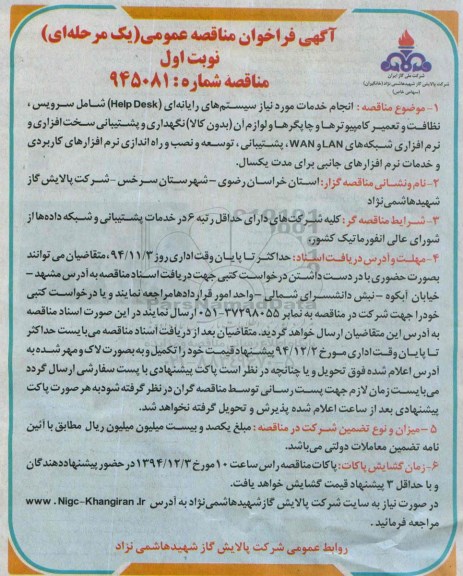 آگهی فراخوان مناقصه عمومی(یک مرحله‌ای)
نوبت اول
مناقصه شماره: ۹۴۵۰۸۱
شرکت ملی گاز ایران
شرکت پالایش گاز شهیدهاشمی نژاد (خانگیران)
(سهامی خاص)
۱- موضوع مناقصه : انجام خدمات مورد نیاز سیستم‌های رایانه‌ای (Help Desk) شامل سرویس ،
نظافت و تعمیر کامپیوترها و چاپگرها و لوازم آن (بدون کالا) نگهداری و پشتیبانی سخت افزاری و
نرم افزاری شبکه‌های LAN و WAN ، پشتیبانی ، توسعه و نصب و راه اندازی نرم افزارهای کاربردی
و خدمات نرم افزارهای جانبی برای مدت یکسال.
۲- نام و نشانی مناقصه گزار: استان خراسان رضوی – شهرستان سرخس – شرکت پالایش گاز
شهیدهاشمی‌نژاد
۳- شرایط مناقصه گر: کلیه شرکت‌های دارای حداقل رتبه ۶ در خدمات پشتیبانی و شبکه داده‌ها از
شورای عالی انفورماتیک کشور.
۴- مهلت و آدرس دریافت اسناد: حداکثر تا پایان وقت اداری روز ۹۴/۱۱/۳، متقاضیان می توانند
بصورت حضوری با در دست داشتن درخواست کتبی جهت دریافت اسناد مناقصه به آدرس مشهد –
خیابان آبکوه – نبش دانشسرای شمالی – واحد امور قراردادها مراجعه نمایند و یا درخواست کتبی
خود را جهت شرکت در مناقصه به نمابر ۳۷۲۹۸۰۵۵-۰۵۱ ارسال نمایند در این صورت اسناد مناقصه
به آدرس این متقاضیان ارسال خواهد گردید. متقاضیان بعد از دریافت اسناد مناقصه می‌بایست حداکثر
تا پایان وقت اداری مورخ ۹۴/۱۲/۲ پیشنهاد قیمت خود را تکمیل و به بصورت لاک و مهر شده به
آدرس اعلام شده فوق تحویل و یا چنانچه در نظر است پاکت پیشنهادی با پست سفارشی ارسال گردد
می‌بایست زمان لازم جهت پست رسانی توسط مناقصه گران در نظر گرفته شود به هر صورت پاکت
پیشنهادی بعد از ساعت اعلام شده پذیرش و تحویل گرفته نخواهد شد.
۵- میزان و نوع تضمین شرکت در مناقصه : مبلغ یکصد و بیست میلیون میلیون ریال مطابق با آئین
نامه تضمین معاملات دولتی می‌باشد.
۶- زمان گشایش پاکات: پاکات مناقصه راس ساعت ۱۰ مورخ ۱۳۹۴/۱۲/۳ در حضور پیشنهاد دهندگان
و با حداقل ۳ پیشنهاد قیمت گشایش خواهد یافت.
در صورت نیاز به سایت شرکت پالایش گاز شهیدهاشمی‌نژاد به آدرس www.Nigc-Khangiran.Ir
مراجعه فرمائید.
روابط عمومی شرکت پالایش گاز شهیدهاشمی نژاد